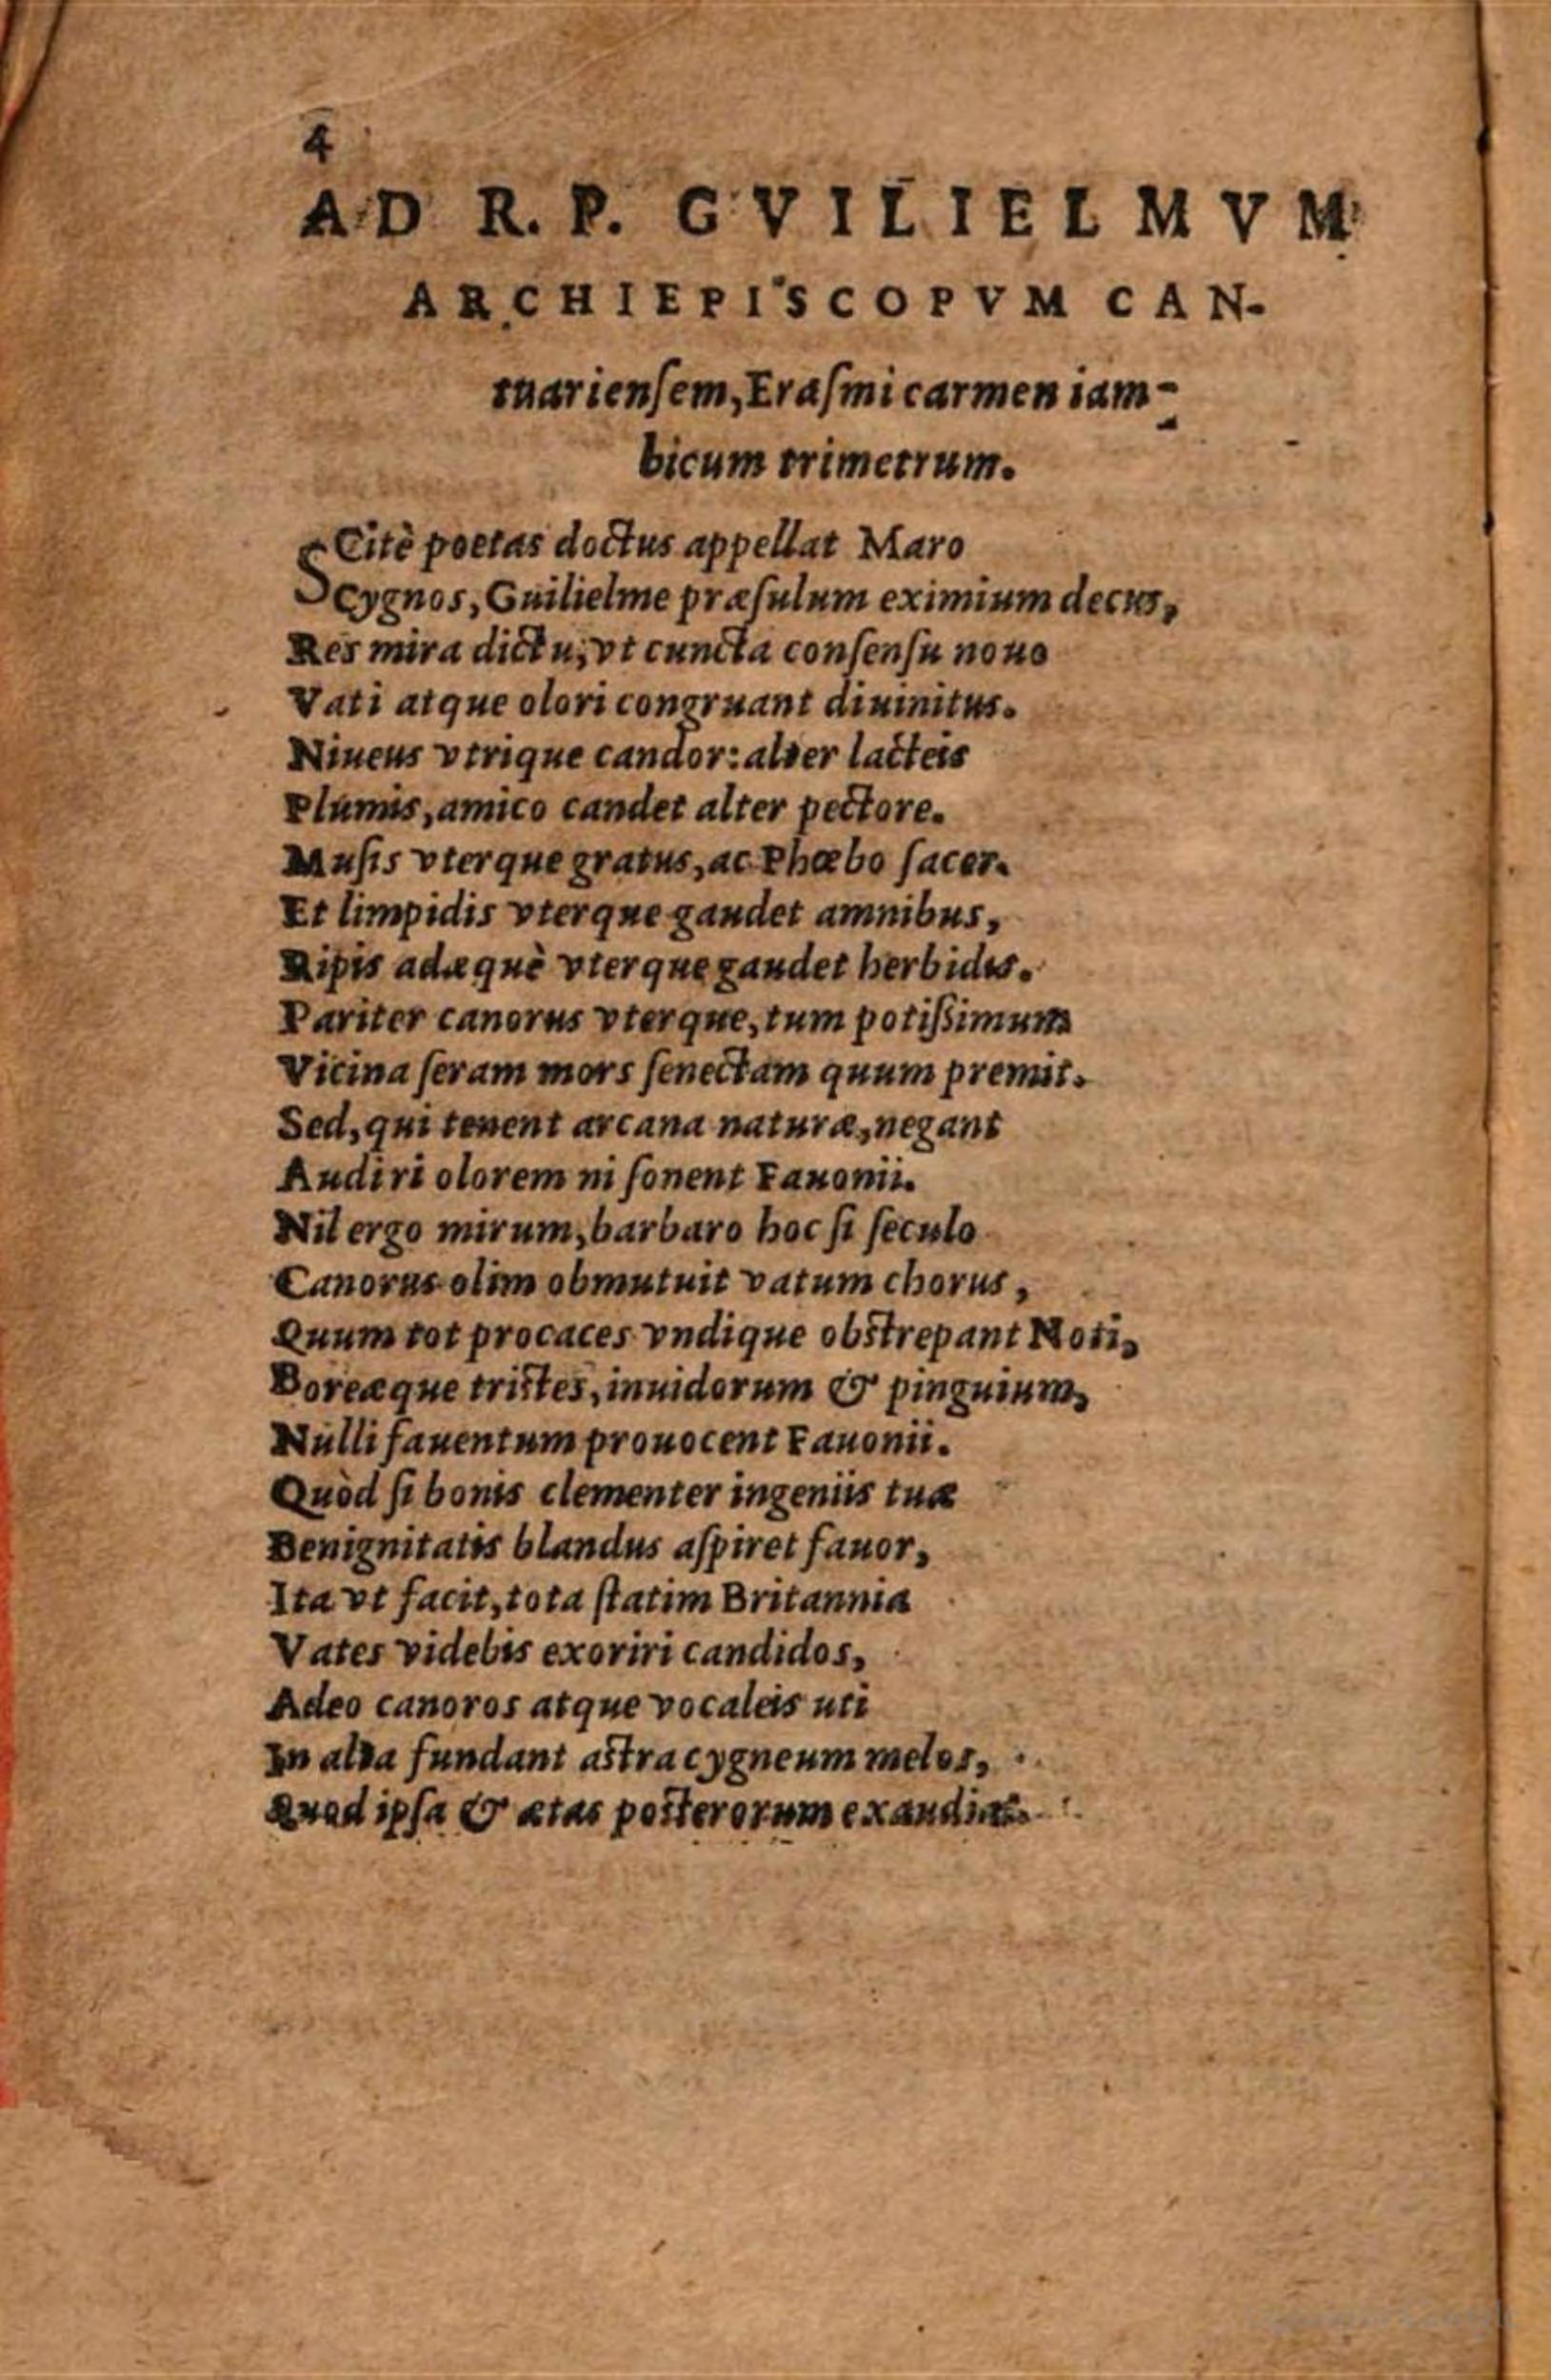 4
AD R. P. GVILIELMVM
ARCHIEPISCOPVM CAN-
tuarienſem, Eraſmi carmen iam-
bicum trimetrum.
SCitè poetas doctus appellat Maro
Cygnos, Guilielme præſulum eximium decus,
Res mira dictu, vt cuncta conſenſu nouo
Vati atque olori congruant diuinitus.
Niueus vtrique candor: alter lacteis
Plumis, amico candet alter pectore.
Muſis vterque gratus, ac Phœbo ſacer.
Et limpidis vterque gaudet amnibus,
Ripis adæquè vterque gaudet herbidis.
Pariter canorus vterque, tum potiſsimum
Vicina ſeram mors ſenectam quum premit.
Sed, qui tenent arcana naturæ, negant
Audiri olorem ni ſonent Fauonii.
Nil ergo mirum, barbaro hoc ſi ſeculo
Canorus olim obmutuit vatum chorus,
Quum tot procaces vndique obstrepant Noti,
Boreæque tristes, inuidorum & pinguium,
Nulli fauentum prouocent Fauonii.
Quòd ſi bonis clementer ingeniis tuæ
Benignitatis blandus aſpiret fauor,
Ita vt facit, tota ſtatim Britannia
Vates videbis exoriri candidos,
Adeo canoros atque vocaleis uti
In alta fundant astra cygneum melos,
Quod ipſa & ætas posterorum exaudiat.